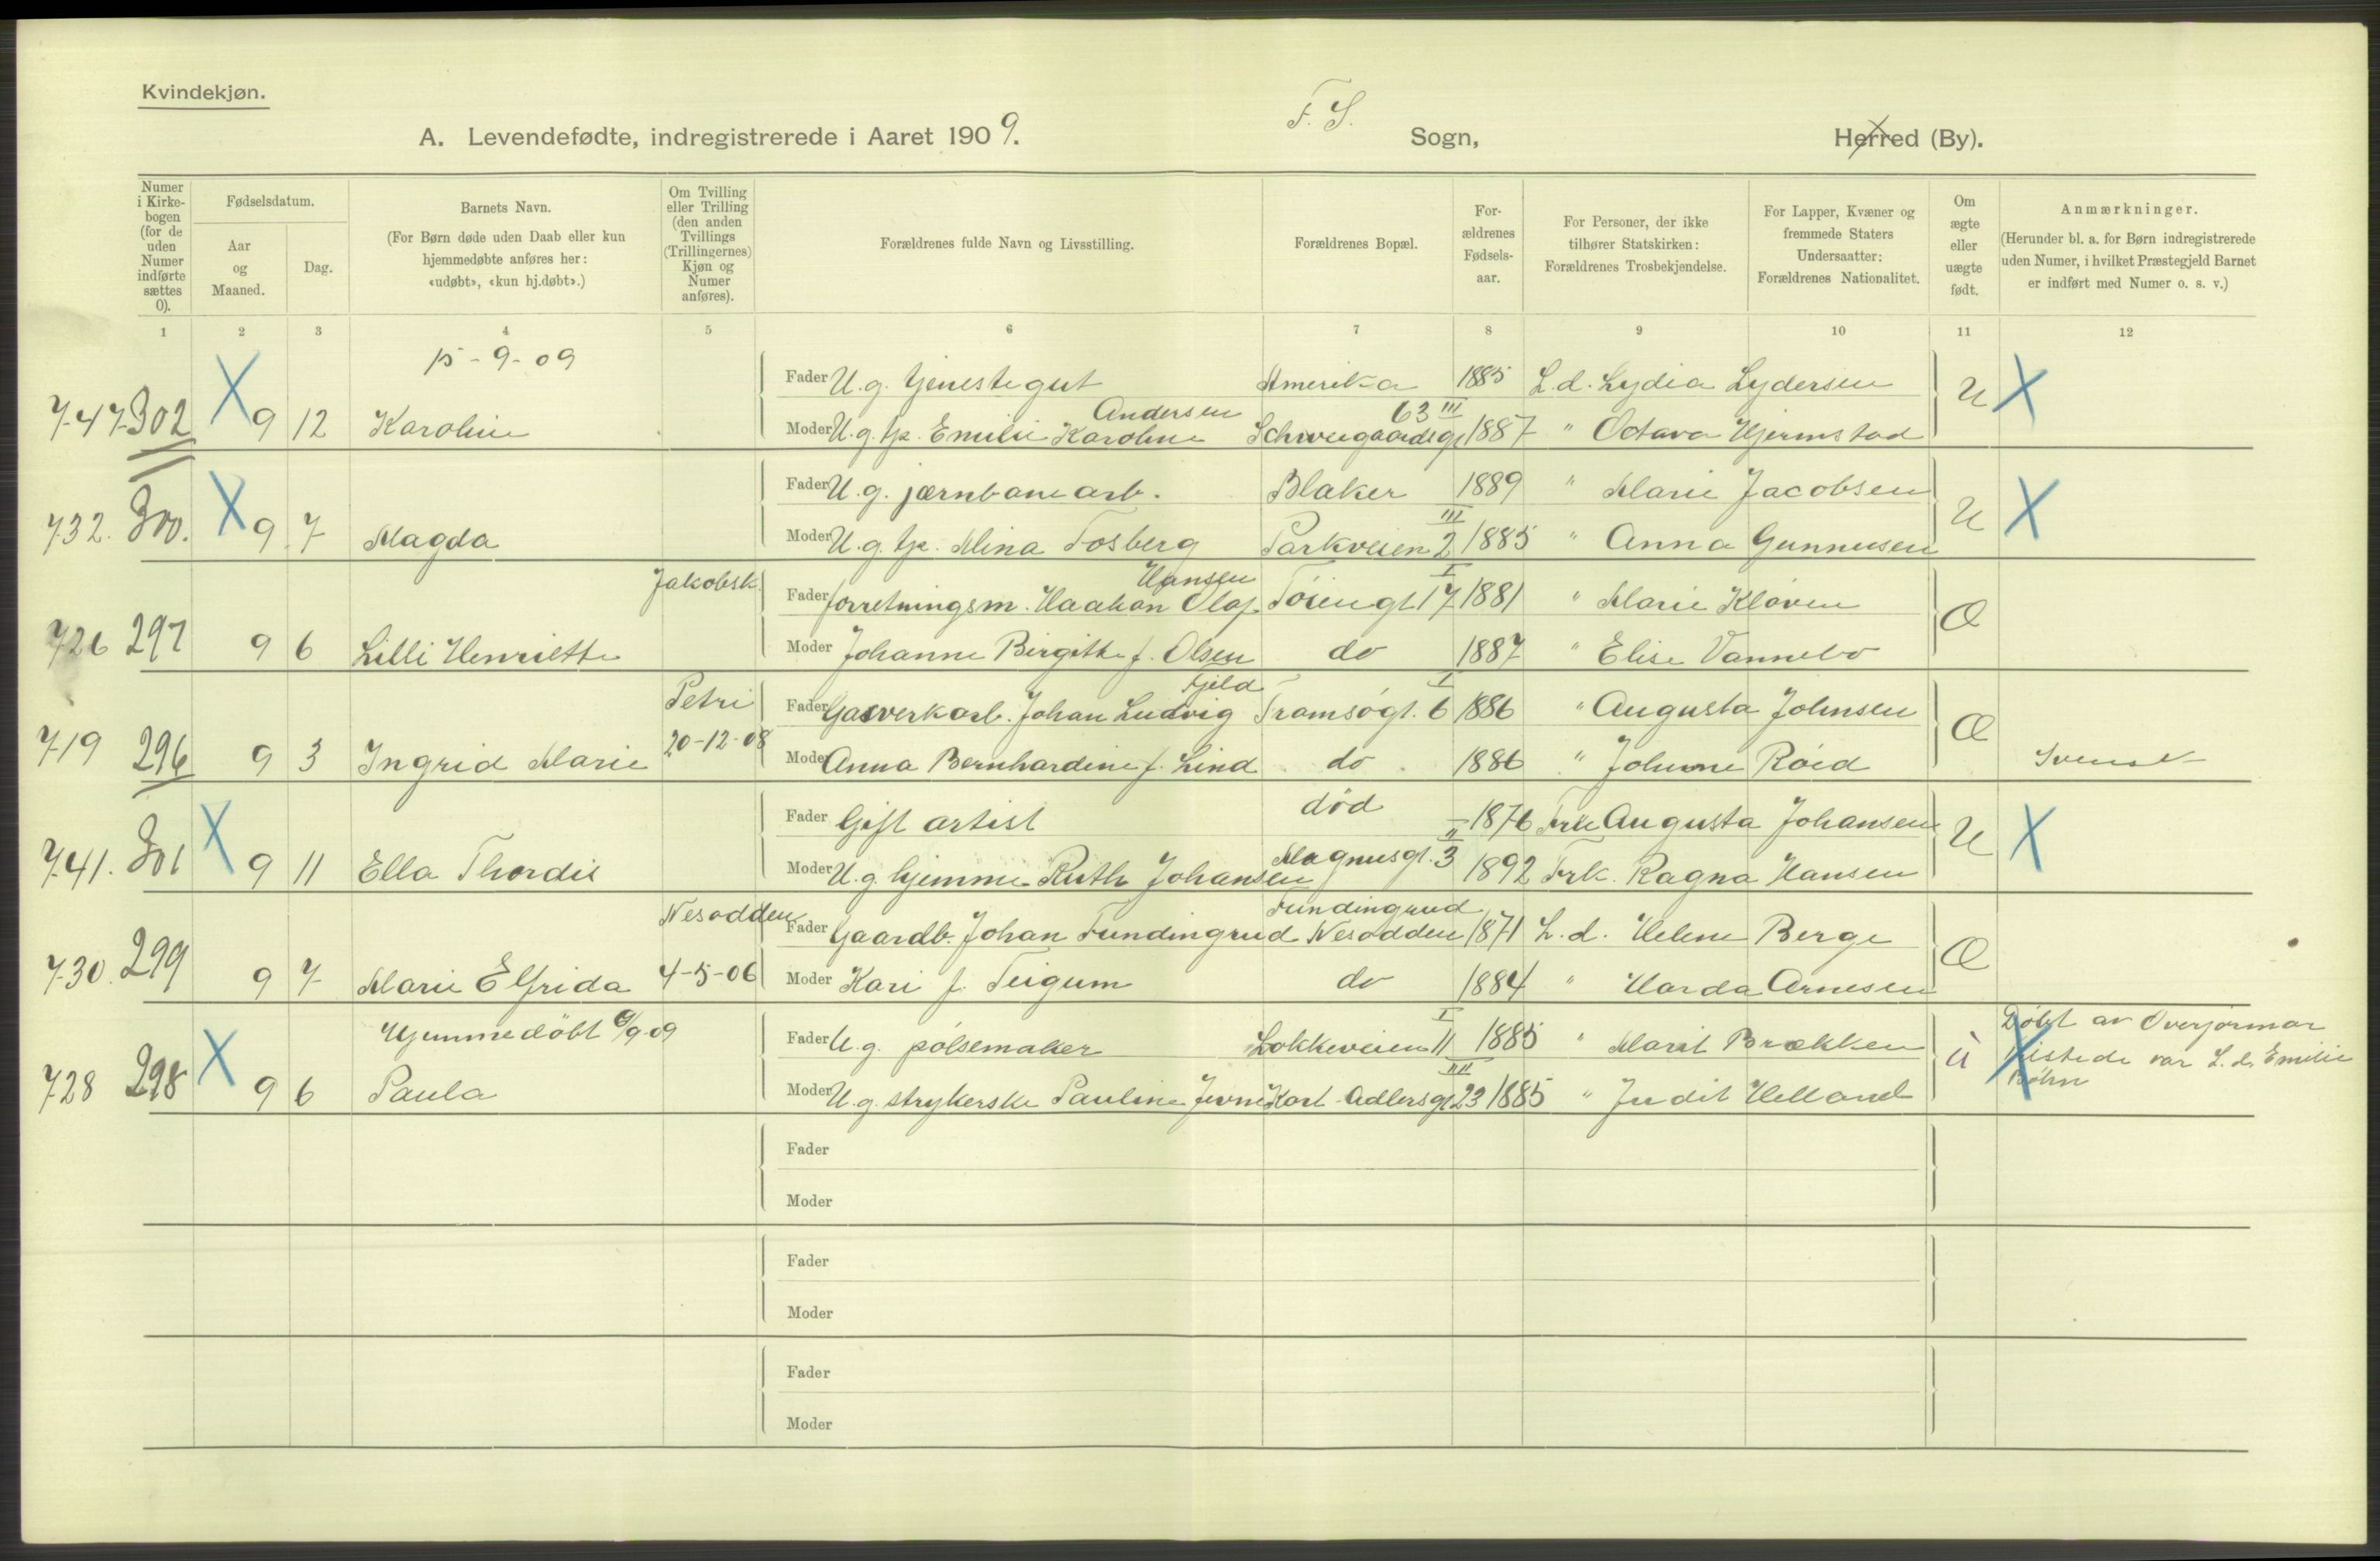 Kvindekjøn.
A. Levendefødte, indregistrerede i Aaret 1909.
F. S. Sogn,
Herred (By).
Numer i Kirkebogen (for de uden Numer indførte sættes 0).
Fødselsdatum.
Aar og Maaned.
Dag.
Barnets Navn.
(For Børn døde uden Daab eller kun hjemmedøbte anføres her: «udøbt», «kun hj.døbt».)
Om Tvilling eller Trilling (den anden Tvillings (Trillingernes) Kjøn og Numer anføres).
Forældrenes fulde Navn og Livsstilling.
Forældrenes Bopæl.
Forældrenes Fødselsaar.
For Personer, der ikke tilhører Statskirken: Forældrenes Trosbekjendelse.
For Lapper, Kvæner og fremmede Staters Undersaatter: Forældrenes Nationalitet.
Om ægte eller uægte født.
Anmærkninger.
(Herunder bl. a. for Børn indregistrerede uden Numer, i hvilket Præstegjeld Barnet er indført med Numer o. s. v.)
1 2 3 4 5 6 7 8 9 10 11 12
15-9-09
Fader U. g. tjenestegut Amerika 1885 L. d. Lydia Lydersen
747 302 X 9 12 Karoline U X
Moder U. g. tje. Emilie Karoline Andersen Schweigaardsgt 63 III 1887 " Octava Hjermstad
Fader U. g. jærnbanearb. Blaker 1889 " Marie Jacobsen
732. 300. X 9 7 Magda U X
Moder U. g. tje. Mina Fosberg Parkveien 2 III 1885 " Anna Gunneusen
Jakobsk.
Fader forretningsm. Haakon Olaf Hansen Tøiengt 17 I 1881 " Marie Kløven
726 297 9 6 Lilli Henriette Æ
Moder Johanne Birgitte f. Olsen do 1887 " Elise Vannebo
Petri
Fader Gasverkarb. Johan Ludvig Fjeld Tromsøgt. 6 I 1886 " Augusta Johnsen
719 296 9 3 Ingrid Marie 20-12-08 Æ
Moder Anna Bernhardine f. Lind do 1886 " Johanne Røed Svensk
Fader Gift artist død 1876 Frk Augusta Johansen
741. 301 X 9 11 Ella Thordis U X
Moder U. g. hjemme Ruth Johansen Magnusgt. 3 II 1892 Frk. Ragna Hansen
Nesodden
Fader Gaardb. Johan Fundingrud Fundingrud Nesodden 1871 L. d. Helene Berge
730. 299 9 7 Marie Elfrida 4-5-06 Æ
Moder Kari f. Teigum do 1884 " Harda Arnesen
Hjemmedöbt 6/9-09
Fader U. g. pölsemaker Løkkeveien 11 I 1885 " Marit Brækken
728 298 X 9 6 Paula U X
Moder U. g. strykerske Pauline Jevne Karl Adlersgt 23 III 1885 " Judit Helland
Döbt av Overjormor
tilstede var L. d. Emilie
Böhn
Fader
Moder
Fader
Moder
Fader
Moder